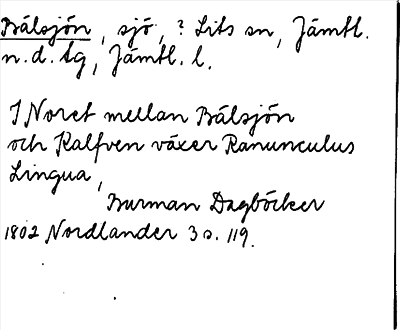 Bälsjön, sjö, ? Lits sn, Jämtl.
n.d. tg, Jämtl. l.
I Noret mellan Bälsjön
och Kalfven växer Ranunculus
Lingua,
Burman Dagböcker
1802 Nordlander 3 s. 119.